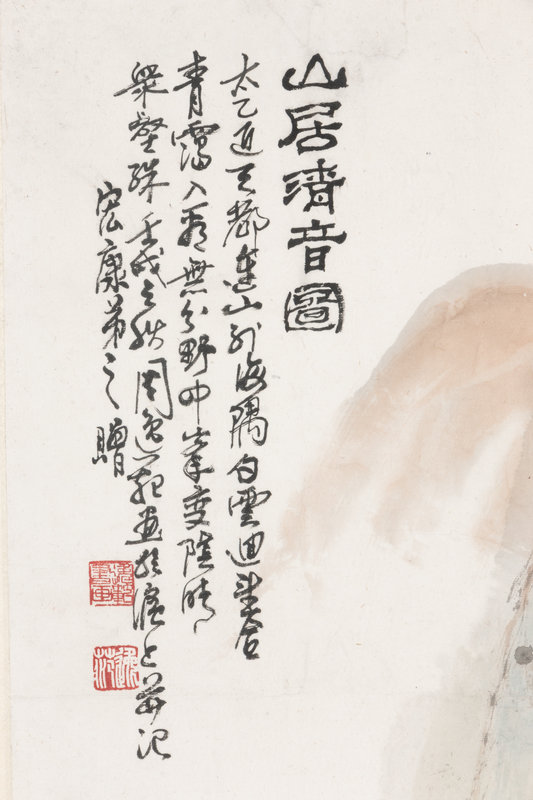 山居清音圖
太乙近天都連山到海隅白雲迴望合
青靄入看無分野中峯變陰晴
衆壑殊壬戌之秋周逸範畫於滬上并記
宏康弟之贈